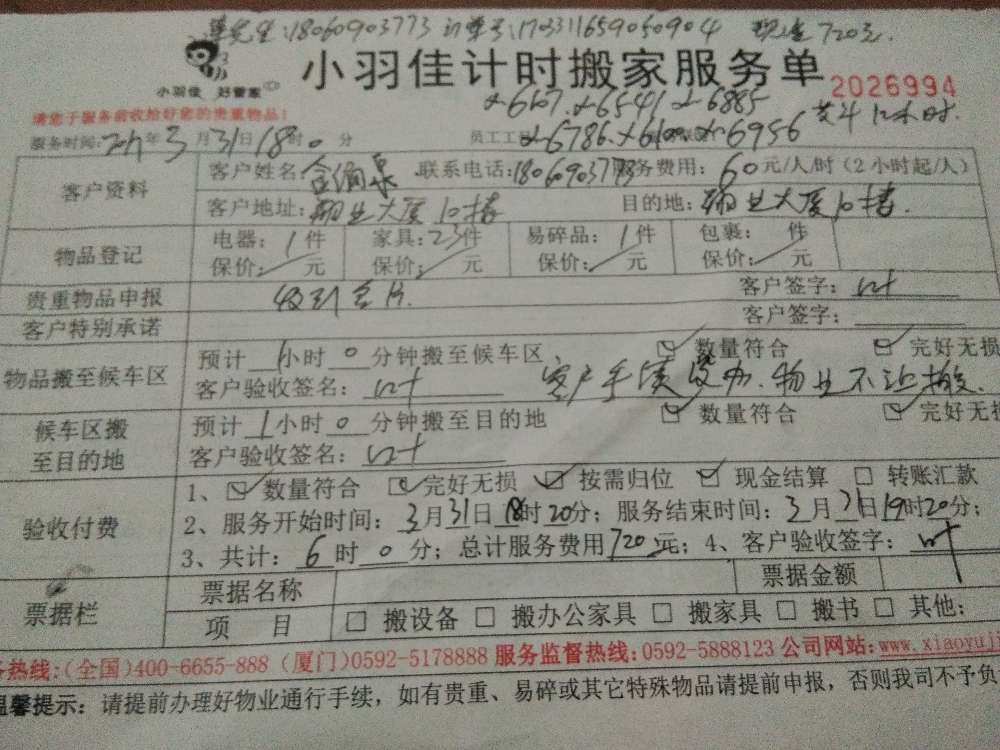 18060903773 订单号:1703311659060904 现金720元.
小羽佳 好管家
小羽佳计时搬家服务单
2026994
请您于服务前收拾好您的贵重物品!
α-6607. α-6541 α-6885
服务时间:2017年3月31日18时0分 员工工 α-6786. 6956 共计12小时.
客户资料 客户姓名: 联系电话:18060903773 务费用:60元/人/时(2小时起/人)
客户地址:翔业大厦10楼 目的地:翔业大厦10楼.
物品登记 电器:1件 家具:23件 易碎品:1件 包裹: 件
保价: 元 保价: 元 保价: 元 保价: 元
贵重物品申报 客户签字:叶
客户特别承诺 客户签字:
物品搬至候车区 预计1小时0分钟搬至候车区 ☑数量符合 ☑完好无损
客户验收签名:叶 客户手续没办.物业不让搬.
候车区搬至目的地 预计1小时0分钟搬至目的地 ☑数量符合 ☑完好无损
客户验收签名:叶
验收付费 1、☑数量符合 ☑完好无损 ☑按需归位 ☑现金结算 □转账汇款
2、服务开始时间:3月31日18时20分;服务结束时间:3月31日19时20分;
3、共计:6时0分;总计服务费用720元;4、客户验收签字:叶
票据栏 票据名称 票据金额
项 目 □搬设备 □搬办公家具 □搬家具 □搬书 □其他:
务热线:(全国)400-6655-888 (厦门)0592-5178888 服务监督热线:0592-5888123 公司网站:www.xiaoyuji
温馨提示:请提前办理好物业通行手续,如有贵重、易碎或其它特殊物品请提前申报,否则我司不予负